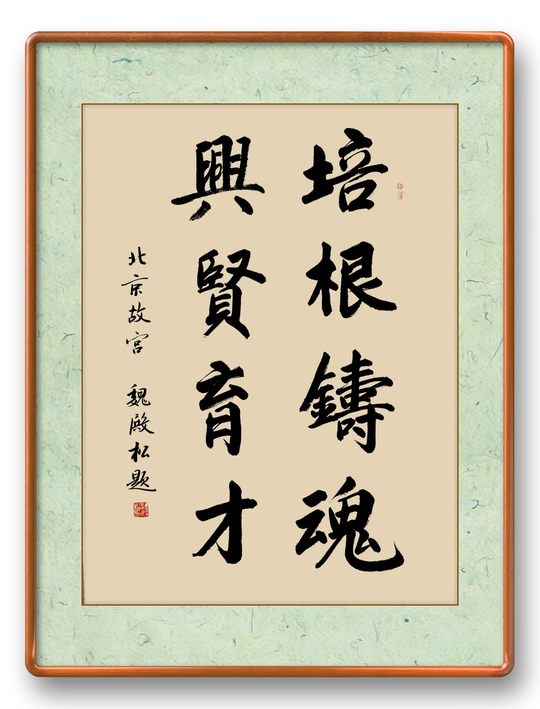 培根鑄魂
興賢育才
北京故宫 魏殿松题